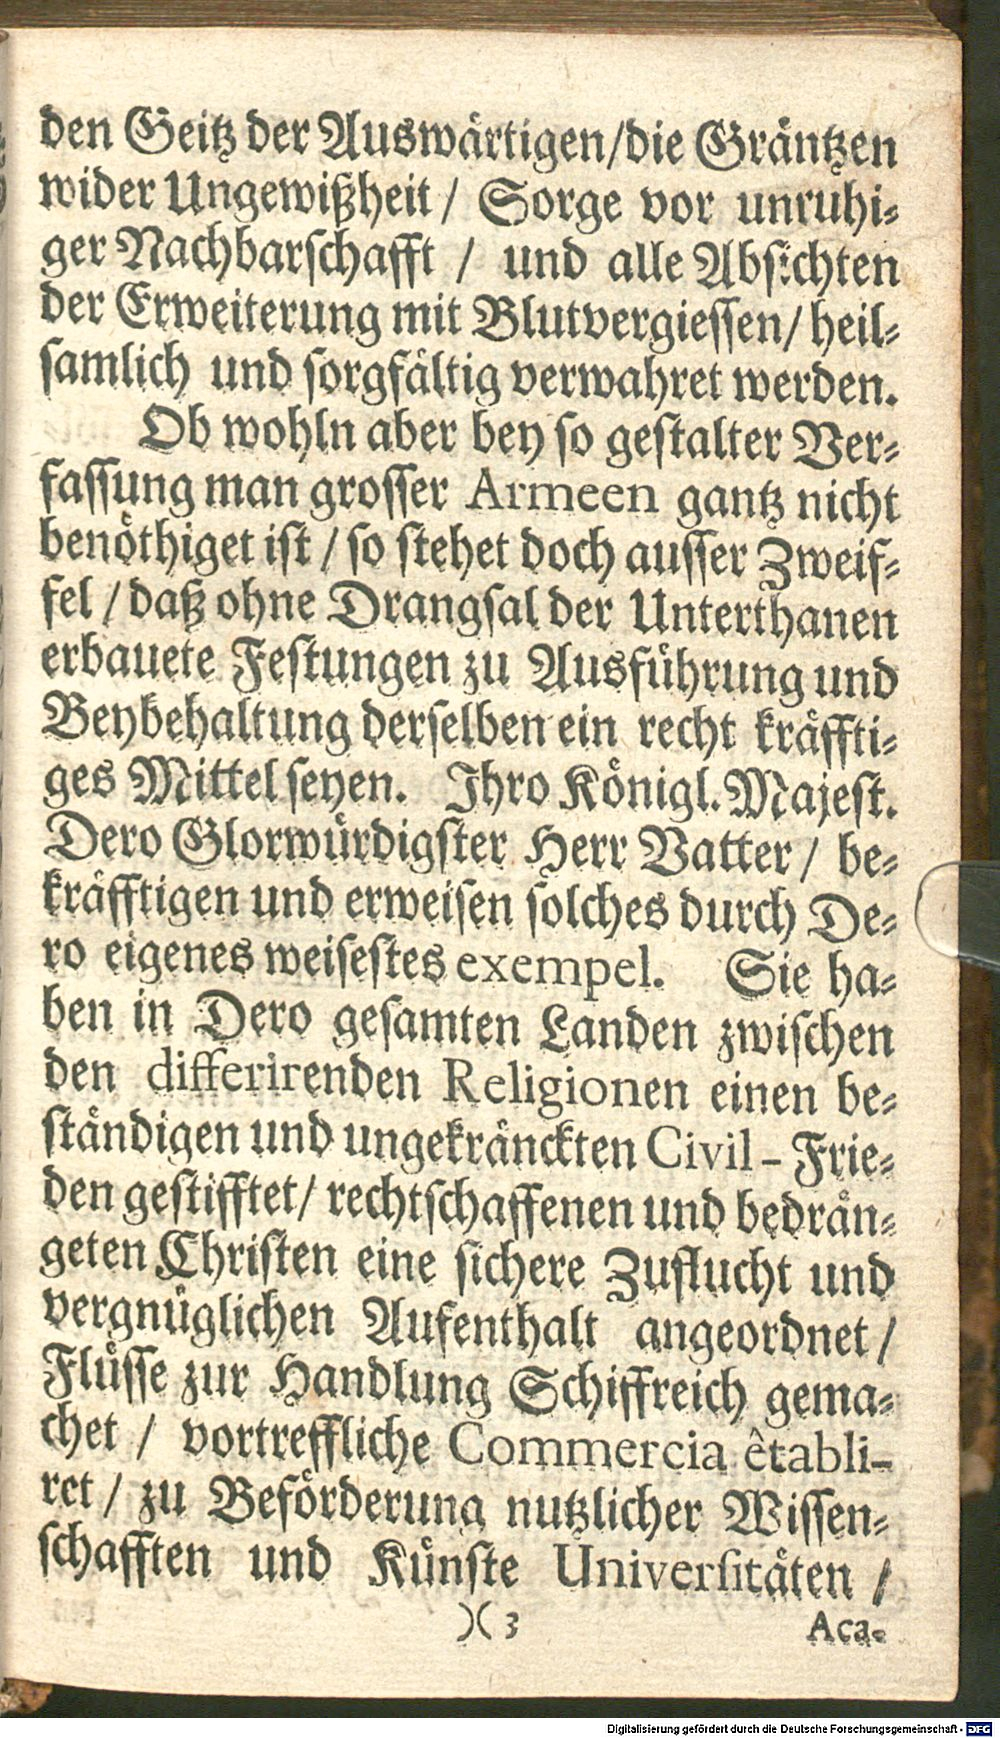 den Geitz der Auswärtigen/die Gräntzen
wider Ungewißheit / Sorge vor unruhi-
ger Nachbarschafft / und alle Absichten
der Erweiterung mit Blutvergiessen/ heil-
samlich und sorgfältig verwahret werden.
Ob wohln aber bey so gestalter Ver-
fassung man grosser Armeen gantz nicht
benöthiget ist / so stehet doch ausser Zweif-
fel / daß ohne Drangsal der Unterthanen
erbauete Festungen zu Ausführung und
Beybehaltung derselben ein recht kräffti-
ges Mittel seyen. Ihro Königl. Majest.
Dero Glorwürdigster Herr Vatter / be-
kräfftigen und erweisen solches durch De-
ro eigenes weisestes exempel. Sie ha-
ben in Dero gesamten Landen zwischen
den differirenden Religionen einen be-
ständigen und ungekränckten Civil - Frie-
den gestifftet/ rechtschaffenen und bedrän-
geten Christen eine sichere Zuflucht und
vergnüglichen Aufenthalt angeordnet /
Flüsse zur Handlung Schiffreich gema-
chet / vortreffliche Commercia êtabli-
ret / zu Beförderung nutzlicher Wissen-
schafften und Künste Universitäten /
)( 3 Aca-
Digitalisierung gefördert durch die Deutsche Forschungsgemeinschaft - DFG